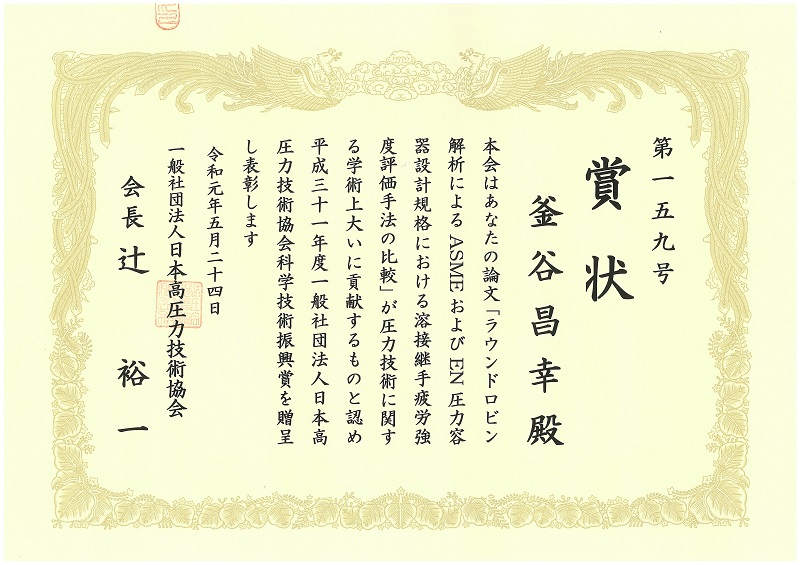 第一五九号
賞状
釜谷昌幸殿
本会はあなたの論文「ラウンドロビン
解析によるASMEおよびEN圧力容
器設計規格における溶接継手疲労強
度評価手法の比較」が圧力技術に関す
る学術上大いに貢献するものと認め
平成三十一年度一般社団法人日本高
圧力技術協会科学技術振興賞を贈呈
し表彰します
令和元年五月二十四日
一般社団法人日本高圧力技術協会
会長辻裕一